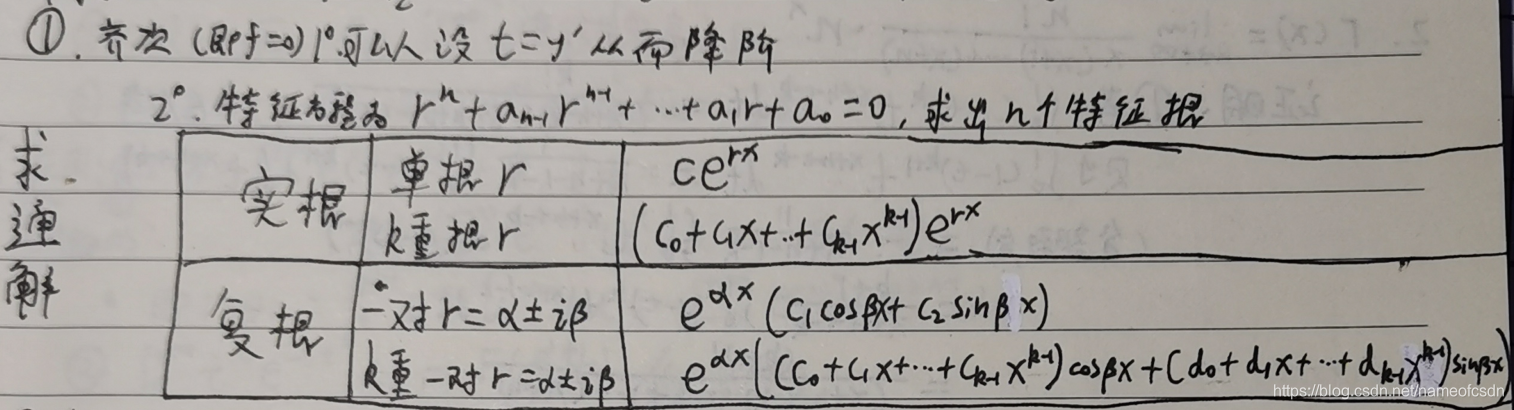 ①. 齐次 (即f=0) 1°.可以设 t=y' 从而降阶
2°. 特征方程为 rⁿ + aₙ₋₁rⁿ⁻¹ + ⋯ + a₁r + a₀ = 0, 求出 n个特征根
求通解
实根 单根 r ce^{rx}
k重根 r (c₀+c₁x+⋯+c_{k-1}x^{k-1})e^{rx}
复根 一对 r=α±iβ e^{αx}(c₁cosβx+c₂sinβx)
k重一对 r=α±iβ e^{αx}((c₀+c₁x+⋯+c_{k-1}x^{k-1})cosβx+(d₀+d₁x+⋯+d_{k-1}x^{k-1})sinβx)
https://blog.csdn.net/nameofcsdn